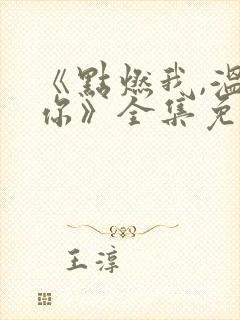 《點燃我,溫
你》全集免
王淳